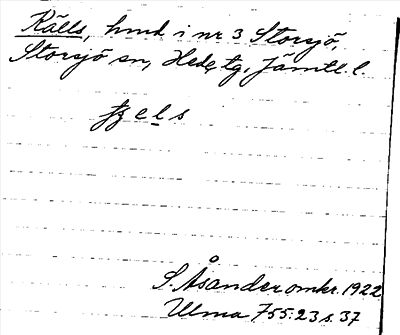 Källs, hmd i nr 3 Storsjö,
Storsjö sn, Hede tg, Jämtl. l.
S. Åsander omkr. 1922
Ulma 755:23 s. 37